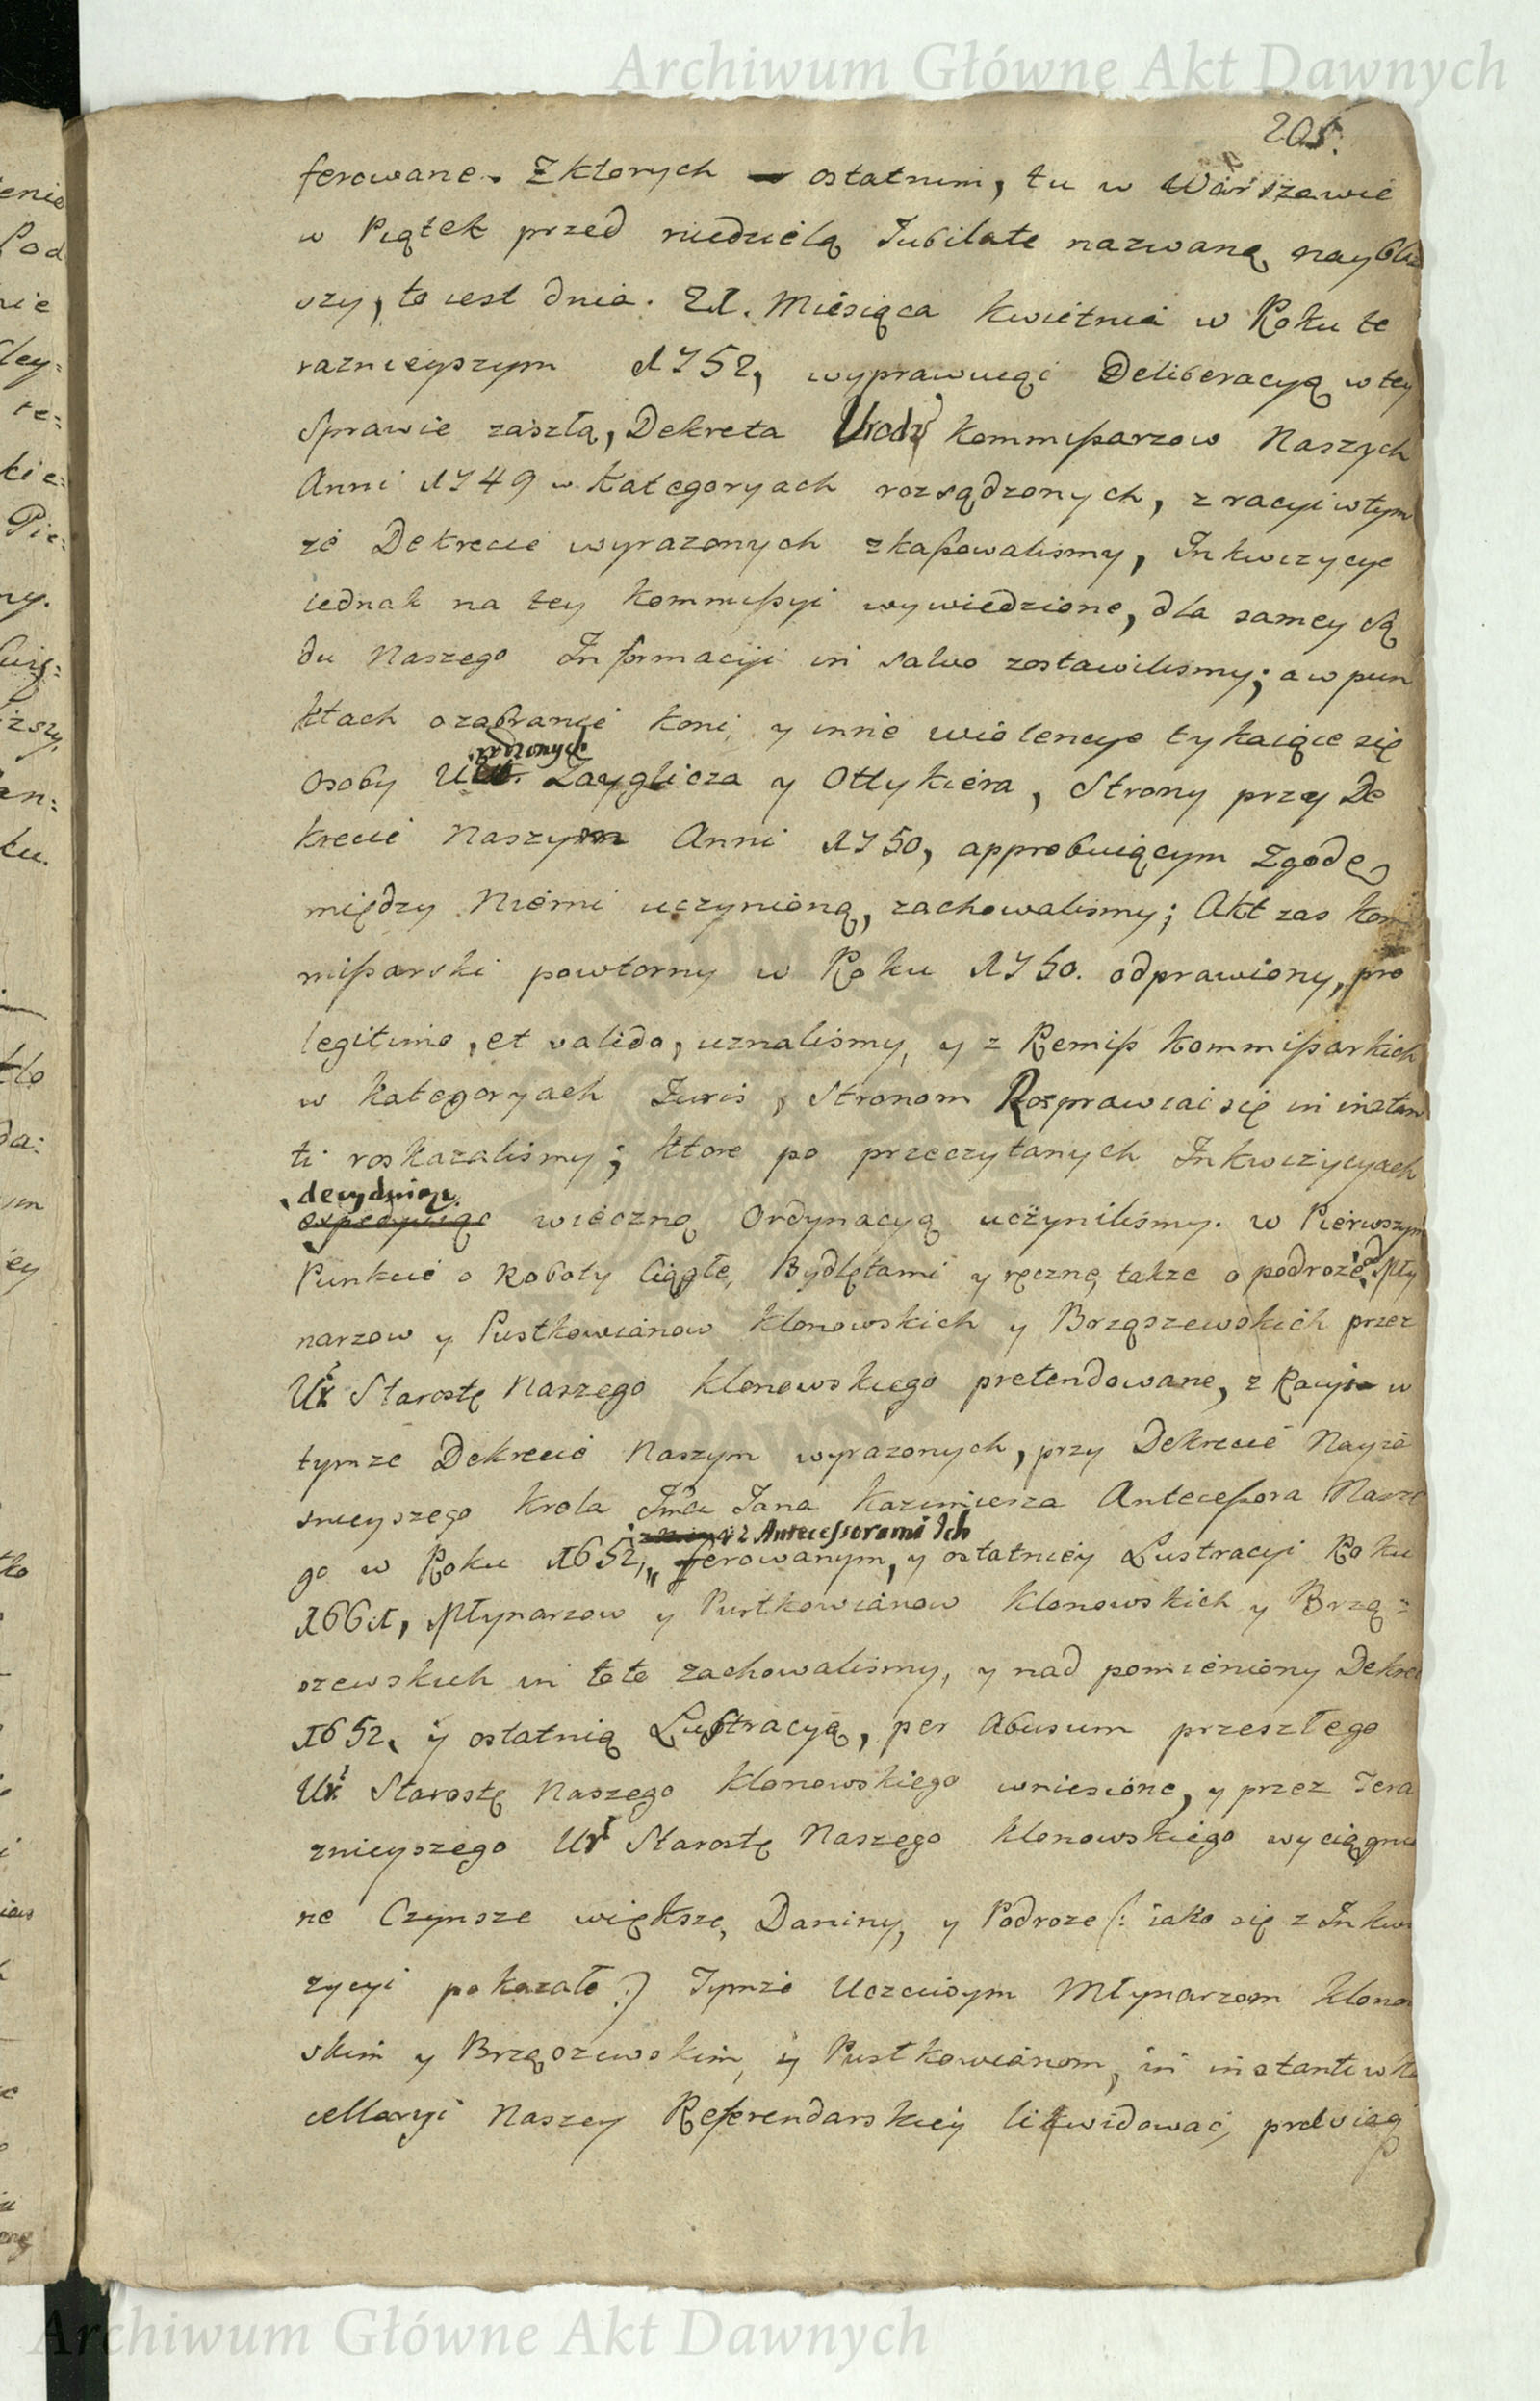 Archiwum Główne Akt Dawnych
205.
ferowane. Z ktorych ostatnim, tu w Warszawie
w Piątek przed niedzielą Jubilate nazwaną naybliz
szy, to iest dnia. 21. Miesiąca kwietnia w Roku te
razniejszym 1752, wyprawuiąc Deliberacyą w tey
Sprawie zaszłą, Dekreta Urodz kommißarzow Naszych
Anni 1749 w kategoryach rozsądzonych, z racyi w tym
ze Dekrecie wyrazonych zkaßowalismy, Inkwizycye
iednak na tey kommißyi wywiedzione, dla samey Są
du Naszego Informacyi in salvo zostawilismy; a w pun
ktach o zabranie koni y inne wiolencye tykaiące się
rodzonych
Osoby Zayglicza y Ottykiera, Strony przy De
krecie Naszym Anni 1750, approbuiącym Zgodę
między Niemi uczynioną, zachowalismy; Akt zas kom
mißarski powtorny w Roku 1750. odprawiony, pro
legitimo, et valido, uznalismy, y z Remiß kommißarkich
w kategoryach Juris, Stronom Rosprawiai się in instan
ti roskazalismy; ktore po przeczytanych Inkwizycyach
decyduiąc
expedyuiąc wieczną Ordynacyą uczynilismy. w Pierwszym
Punkcie o Roboty Ciągłe, Bydlętami y ręczne, takze o podroze od Mły
narzow y Pustkowianow klonowskich y Brząszewskich przez
Ur Starostę Naszego klonowskiego pretendowane, z Racyi w
tymze Dekrecie Naszym wyrazonych, przy Dekrecie Nayia
snieyszego krola Jmci Jana kazimierza Anteceßora Nasze
z Antecessorami Ich
go w Roku 1652, ferowanym, y ostatniey Lustracyi Roku
1661, Młynarzow y Pustkowianow klonowskich y Brzą=
szewskich in toto zachowalismy, y nad pomieniony Dekret
1652. y ostatnią Lustracyą, per Abusum przeszłego
Ur. Starostę Naszego klonowskiego wniesione, y przez Tera
znieyszego Ur Starostę Naszego klonowskiego wyciągnio
ne Czynsze większe, Daniny, y Podroze (: iako się z Inkwi
zycyi pokazało :) Tymze Uczciwym Młynarzom klonow
skim y Brząszewskim, y Pustkowianom, in instanti w ka
cellaryi Naszey Referendarskiey likwidować, przysiąg
Archiwum Główne Akt Dawnych